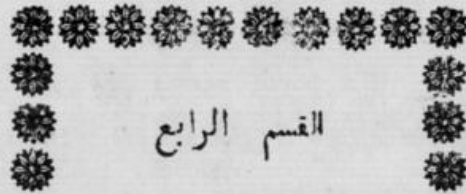 القسم الرابع